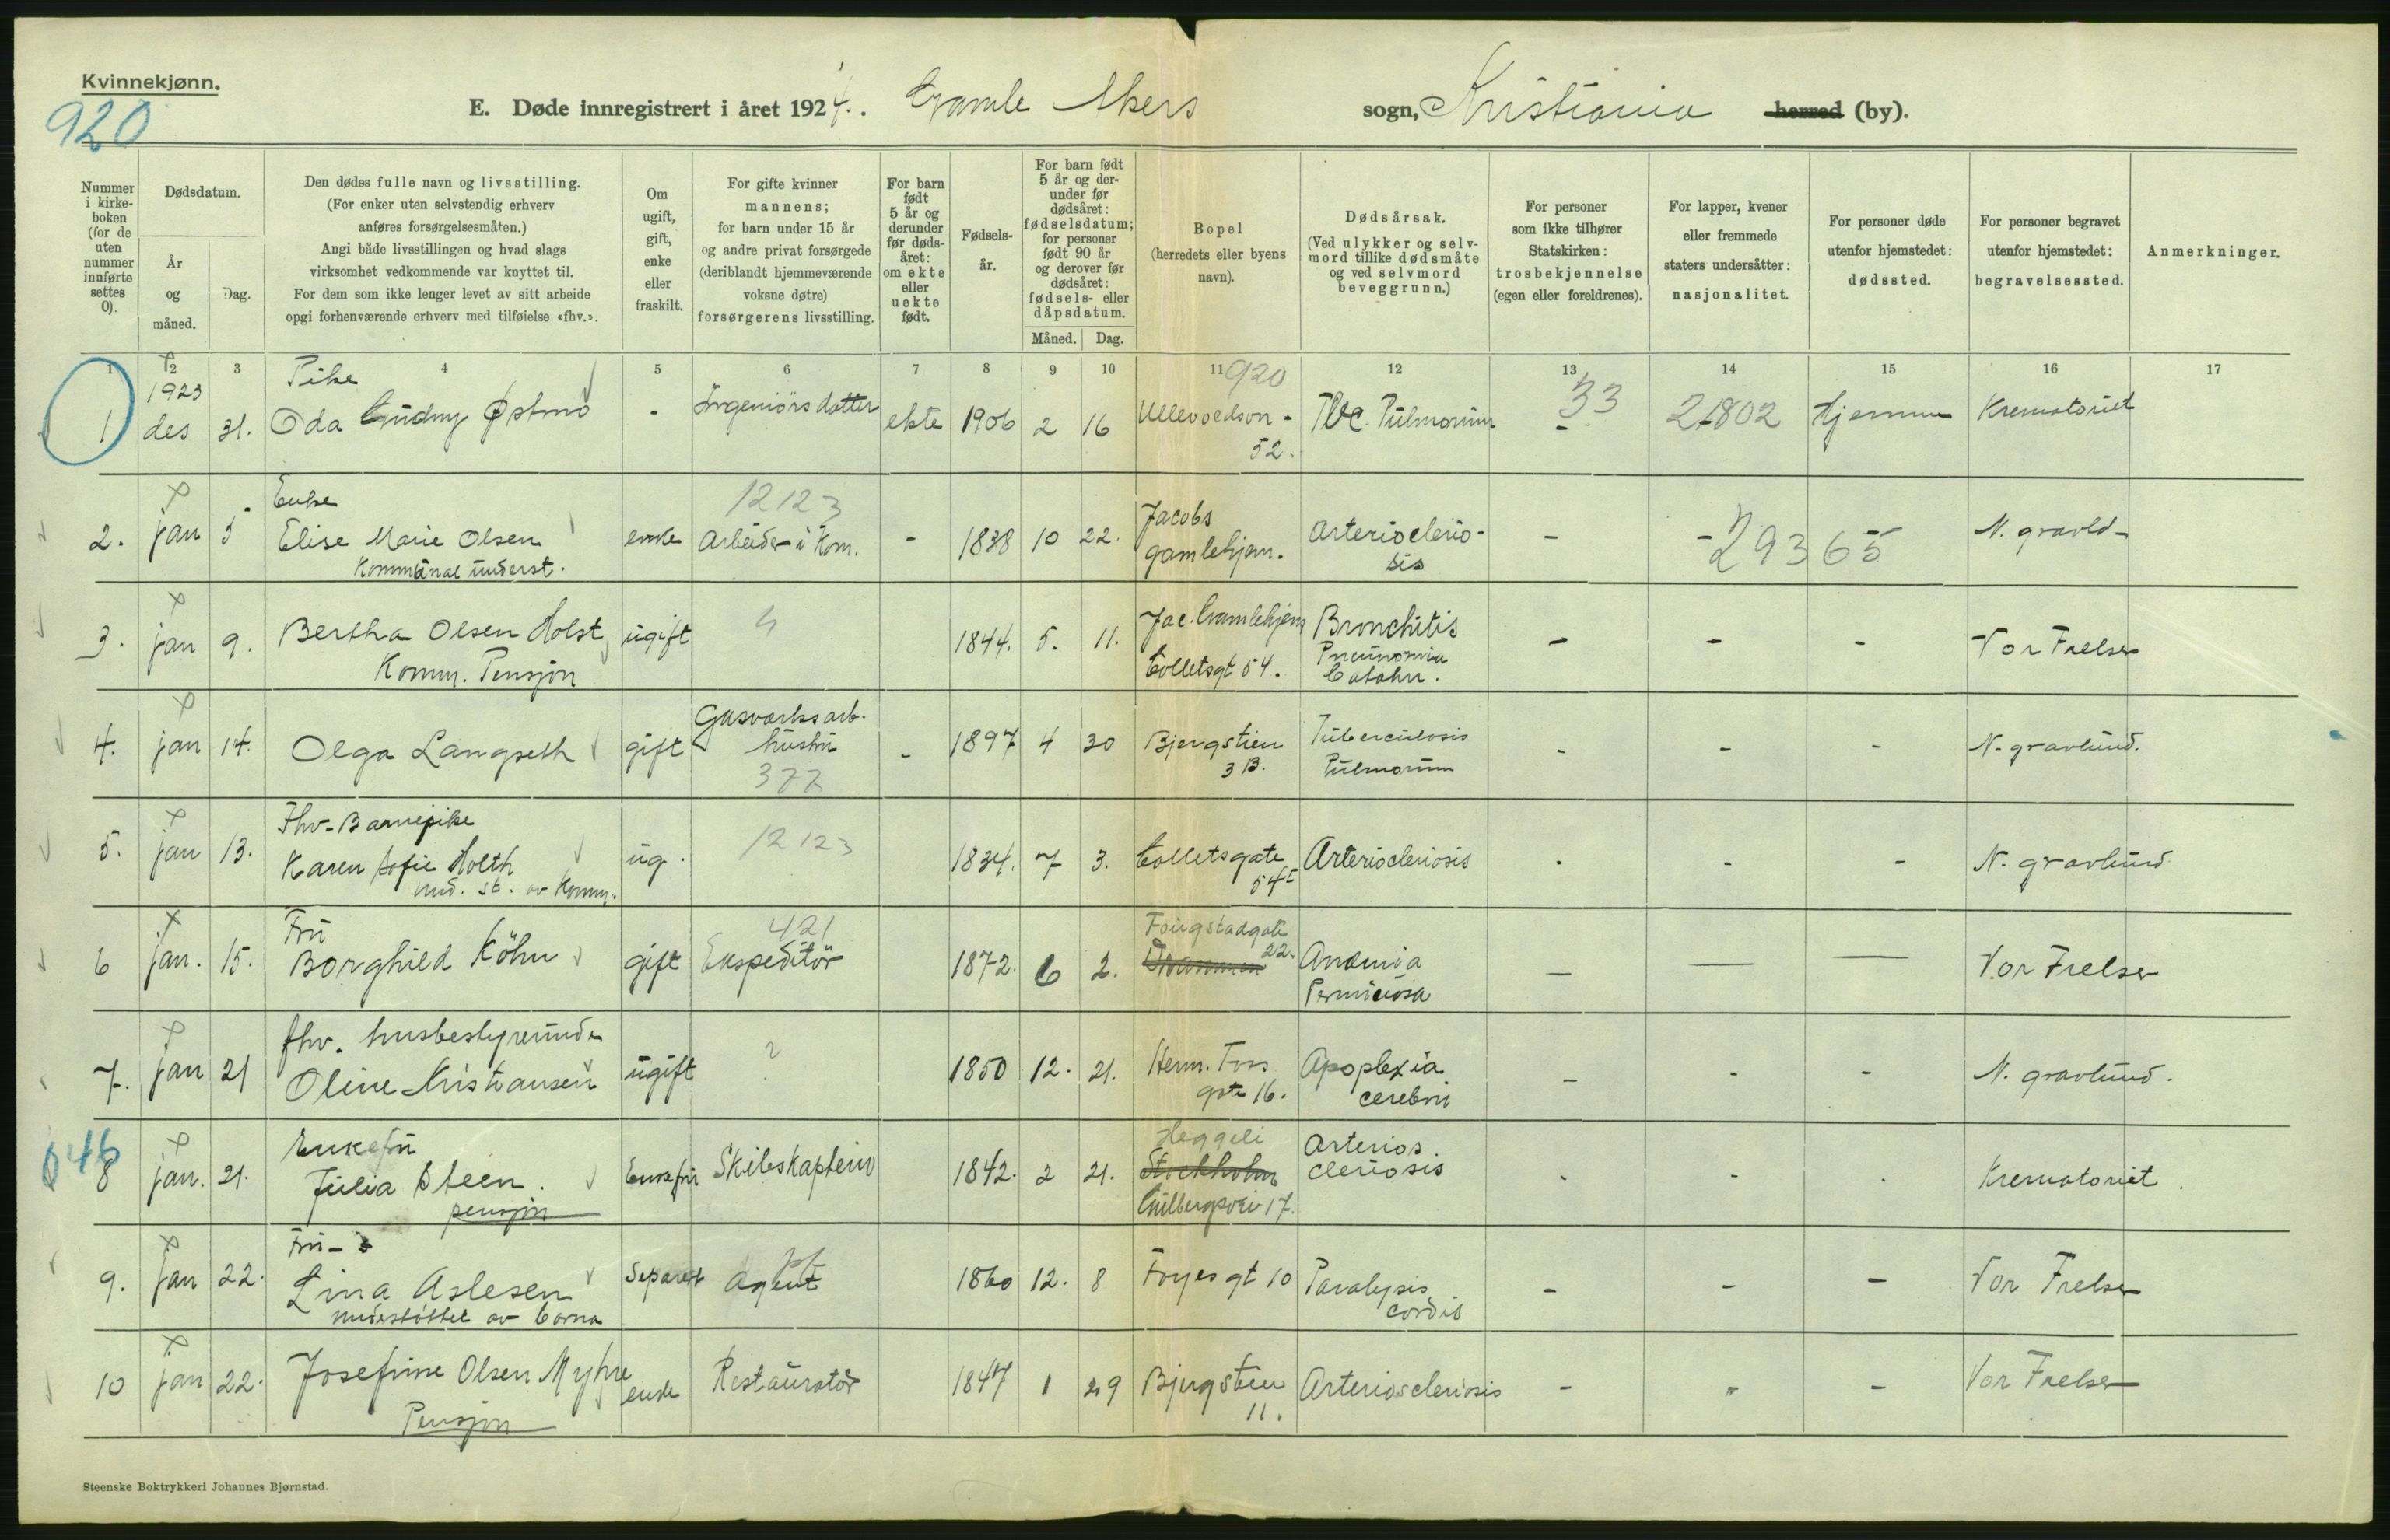 Kvinnekjønn.
920
E. Døde innregistrert i året 1924. Gamle Akers sogn, Kristiania herred (by).
Nummer i kirkeboken (for de uten nummer innførte settes 0).
Dødsdatum.
År og måned.
Dag.
Den dødes fulle navn og livsstilling.
(For enker uten selvstendig erhverv
anføres forsørgelsesmåten.)
Angi både livsstillingen og hvad slags
virksomhet vedkommende var knyttet til.
For dem som ikke lenger levet av sitt arbeide
opgi forhenværende erhverv med tilføielse «fhv.».
Om
ugift,
gift,
enke
eller
fraskilt.
For gifte kvinner
mannens;
for barn under 15 år
og andre privat forsørgede
(deriblandt hjemmeværende
voksne døtre)
forsørgerens livsstilling.
For barn
født
5 år og
derunder
før døds-
året:
om ekte
eller
uekte
født.
Fødsels-
år.
For barn født
5 år og der-
under før
dødsåret:
fødselsdatum;
for personer
født 90 år
og derover før
dødsåret:
fødsels- eller
dåpsdatum.
Måned. Dag.
Bopel
(herredets eller byens
navn).
Dødsårsak.
(Ved ulykker og selv-
mord tillike dødsmåte
og ved selvmord
beveggrunn.)
For personer
som ikke tilhører
Statskirken:
trosbekjennelse
(egen eller foreldrenes).
For lapper, kvener
eller fremmede
staters undersåtter:
nasjonalitet.
For personer døde
utenfor hjemstedet:
dødssted.
For personer begravet
utenfor hjemstedet:
begravelsessted.
Anmerkninger.
1 2 3 4 5 6 7 8 9 10 11 12 13 14 15 16 17
1923 Pike 920 33
1 des 31. Oda Gudny Østmo - Ingeniørs datter ekte 1906 2 16 Tbc. Pulmonum - 21802 Hjemme Krematoriet
52.
Enke 12123 Jacobs
2. jan 5 Elise Marie Olsen enke Arbeider i Kom. - 1838 10 22. gamlehjem. Arterioclero- - - 29365 N. gravld-
Kommunal underst. sis
3. jan 9. Bertha Olsen Holst ugift 4 1844. 5. 11. Jac. Gamlehjem Bronchitis - - - Vor Frelser
Komm. Pensjon Colletsgt 54. Pneumonia
Catahr.
Gasverksarb.
4. jan 14. Olga Langseth gift hustru - 1897 4 30 Bjergstien Tuberculosis - - - N. gravlund.
377 3 B. Pulmonum
Fhv. Barnepike
5. jan 13. Karen Sofie Holth ug. 12123 1834. 7 3. Colletsgate Arterioclerosis - - - N. gravlund
und. st. av Komm. 54
Fru 421 Fougstadgate
6 jan. 15. Borghild Köhn gift Ekspeditør 1872. 6 2. Drammen 22. Anæmia - - - Vor Frelser
Perniciosa
fhv. husbestyrerinde
7. jan 21 Oline Kristiansen ugift ? 1850 12. 21. Herm. Foss Apoplexia - - - N. gravlund.
gate 16. cerebri
046 Enkefru Heggeli
8 jan. 21. Julia Steen. Enkefru Skibskaptein 1842. 2 21. Stockholm Arterios - - - Krematoriet.
pensjon 17. clerosis
Fru -
9. jan 22. Lina Aslesen Separert Agent 1860 12. 8 Foyes gt 10 Paralysis - - - Vor Frelser
understøttet av barna cordis
10 jan 22. Josefine Olsen Myhre enke Restauratør 1847 1 29 Bjergstien Arteriosclerosis - - - Vor Frelser
Pensjon 11.
Steenske Boktrykkeri Johannes Bjørnstad.